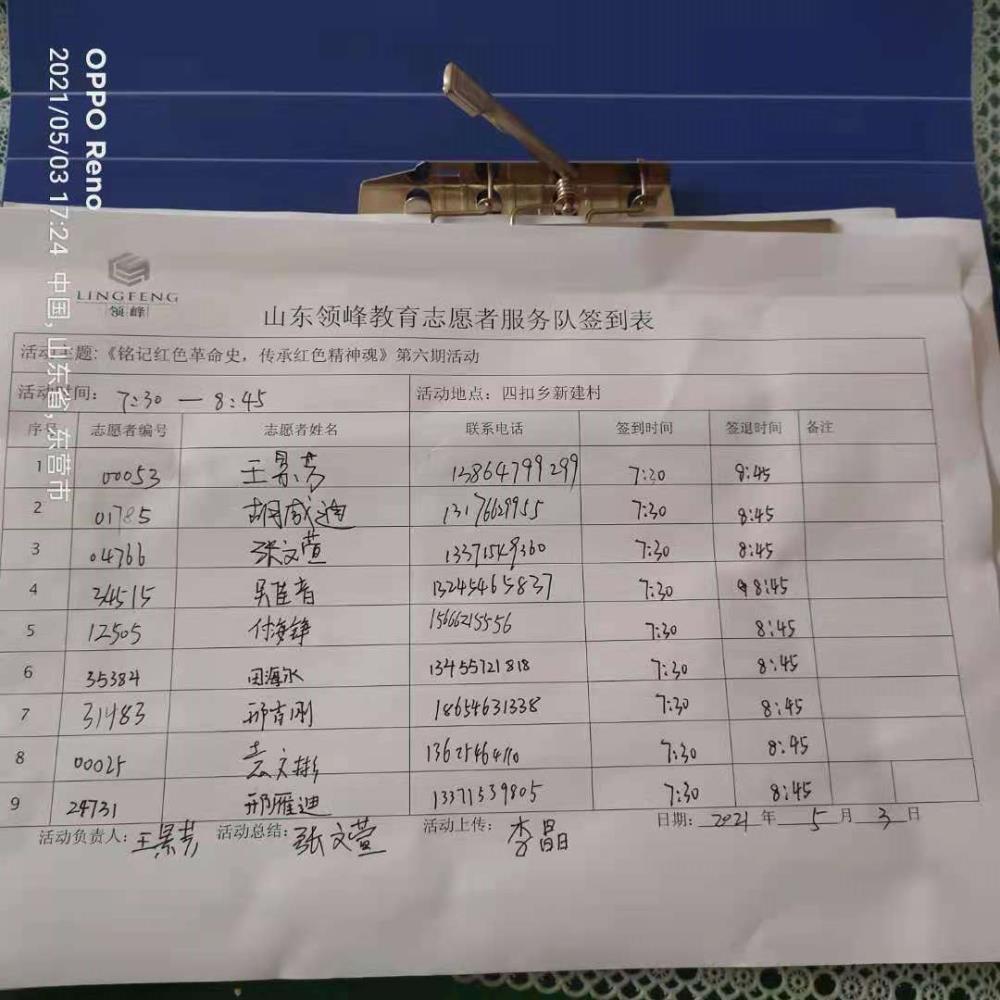 OPPO Reno
2021/05/03 17:24 中国,山东省,东营市
LINGFENG
领峰
山东领峰教育志愿者服务队签到表
活动主题:《铭记红色革命史，传承红色精神魂》第六期活动
活动时间: 7:30 — 8:45 活动地点: 四扣乡新建村
序号 志愿者编号 志愿者姓名 联系电话 签到时间 签退时间 备注
1 00053 王景芳 13864799299 7:30 8:45
2 01785 胡成迪 13176629955 7:30 8:45
3 04766 张文萱 13371549360 7:30 8:45
4 34515 13245465837 7:30 8:45
5 12505 付海铮 15666215556 7:30 8:45
6 35384 田海永 13455721818 7:30 8:45
7 31483 邢吉刚 18654631338 7:30 8:45
8 00025 文彬 7:30 8:45
9 24731 邢雁迪 13371539805 7:30 8:45
活动负责人: 王景芳 活动总结: 张文萱 活动上传: 李晶 日期: 2021 年 5 月 3 日